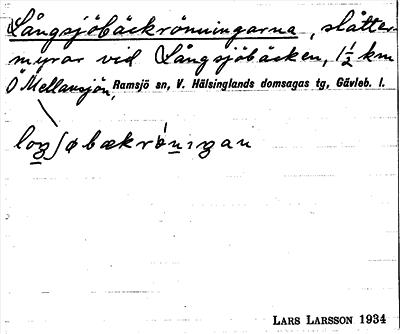 Långsjöbäckrönningarna, slåtter-
myrar vid Långsjöbäcken, 1½ km
Ö Mellansjön, Ramsjö sn, V. Hälsinglands domsagas tg, Gävleb. l.
LARS LARSSON 1934